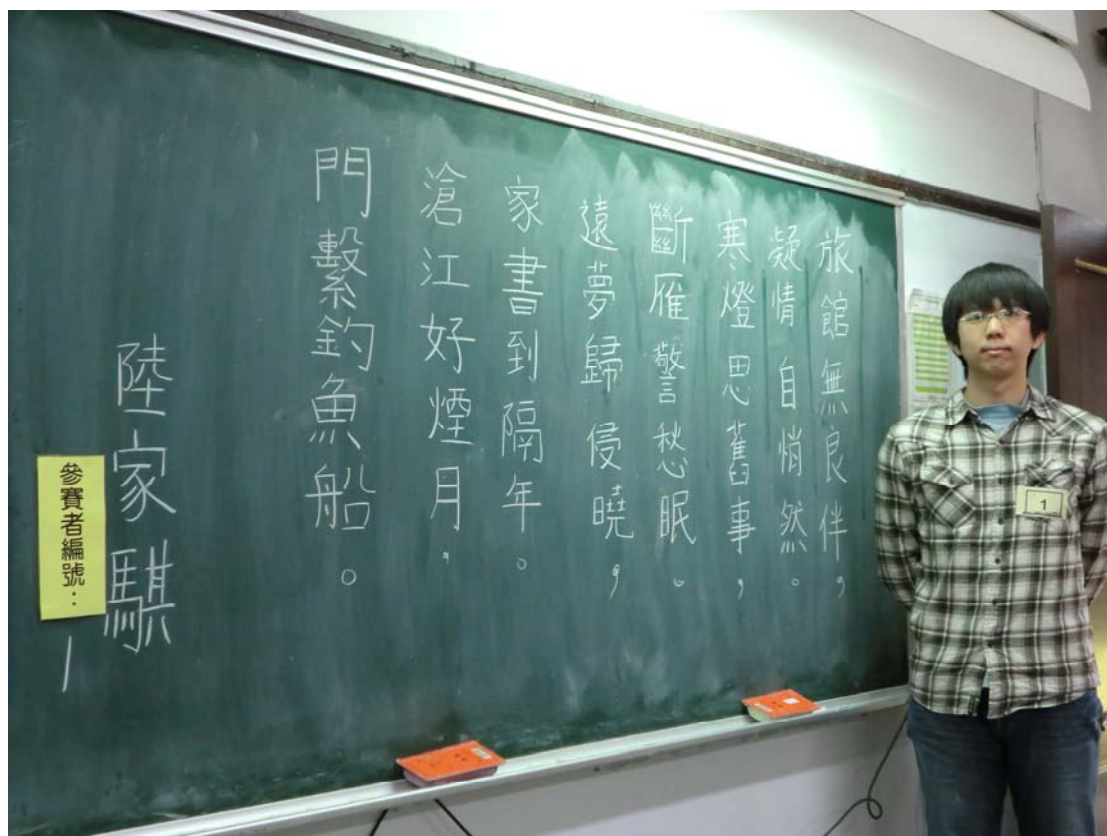 旅館無良伴，
凝情自悄然。
寒燈思舊事，
斷雁警愁眠。
遠夢歸侵曉，
家書到隔年。
滄江好煙月，
門繫釣魚船。
陸家騏
參賽者編號：1
1